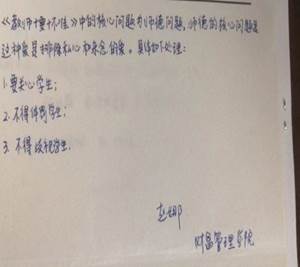 《教师十要十不准》中的核心问题为师德问题,师德的核心问题是
这种 是 排除私心和杂念的爱。具体如下处理:
1.要关心学生;
2.不得体罚学生;
3.不得歧视学生.
赵娜
财富管理学院